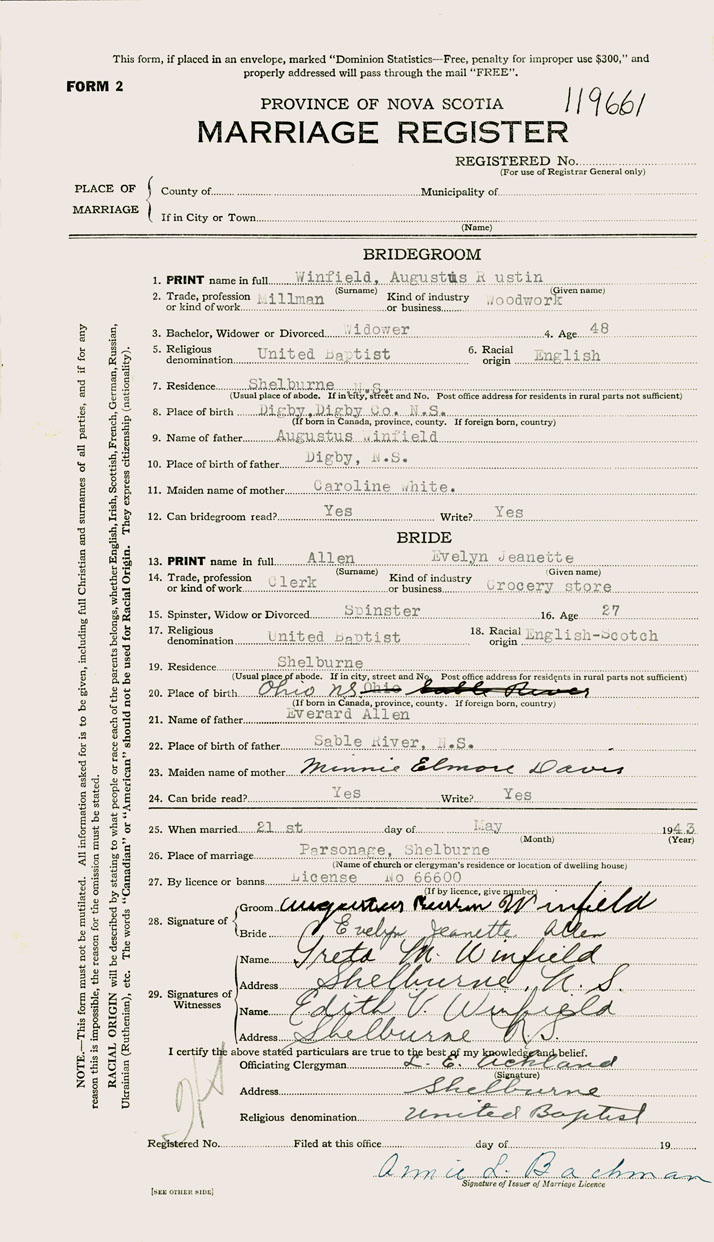 This form, if placed in an envelope, marked "Dominion Statistics—Free, penalty for improper use $300," and
properly addressed will pass through the mail "FREE".
FORM 2
PROVINCE OF NOVA SCOTIA
119661
MARRIAGE REGISTER
REGISTERED No.
(For use of Registrar General only)
PLACE OF MARRIAGE
County of Municipality of
If in City or Town
(Name)
BRIDEGROOM
1. PRINT name in full Winfield, Augustus R ustin
(Surname) (Given name)
2. Trade, profession or kind of work Millman Kind of industry or business Woodwork
3. Bachelor, Widower or Divorced Widower 4. Age 48
5. Religious denomination United Baptist 6. Racial origin English
7. Residence Shelburne N.S.
(Usual place of abode. If in city, street and No. Post office address for residents in rural parts not sufficient)
8. Place of birth Digby, Digby Co. N.S.
(If born in Canada, province, county. If foreign born, country)
9. Name of father Augustus Winfield
10. Place of birth of father Digby, N.S.
11. Maiden name of mother Caroline White.
12. Can bridegroom read? Yes Write? Yes
BRIDE
13. PRINT name in full Allen Evelyn Jeanette
(Surname) (Given name)
14. Trade, profession or kind of work Clerk Kind of industry or business Grocery store
15. Spinster, Widow or Divorced Spinster 16. Age 27
17. Religious denomination United Baptist 18. Racial origin English-Scotch
19. Residence Shelburne
(Usual place of abode. If in city, street and No. Post office address for residents in rural parts not sufficient)
20. Place of birth Ohio NS Ohio Sable River
(If born in Canada, province, county. If foreign born, country)
21. Name of father Everard Allen
22. Place of birth of father Sable River, N.S.
23. Maiden name of mother Minnie Elmore Davis
24. Can bride read? Yes Write? Yes
25. When married 21 st day of May 1943
(Month) (Year)
26. Place of marriage Parsonage, Shelburne
(Name of church or clergyman's residence or location of dwelling house)
27. By licence or banns License No 66600
(If by licence, give number)
28. Signature of
Groom Augustus Rustin Winfield
Bride Evelyn Jeanette Allen
29. Signatures of Witnesses
Name Greta M. Winfield
Address Shelburne, N.S.
Name Edith V. Winfield
Address Shelburne N.S.
I certify the above stated particulars are true to the best of my knowledge and belief.
Officiating Clergyman L. E. Ackland
(Signature)
Address Shelburne
Religious denomination United Baptist
Registered No. Filed at this office day of 19
Annie L. Bachman
Signature of Issuer of Marriage Licence
[SEE OTHER SIDE]
NOTE.—This form must not be mutilated. All information asked for is to be given, including full Christian and surnames of all parties, and if for any
reason this is impossible, the reason for the omission must be stated.
RACIAL ORIGIN will be described by stating to what people or race each of the parents belongs, whether English, Irish, Scottish, French, German, Russian,
Ukrainian (Ruthenian), etc. The words "Canadian" or "American" should not be used for Racial Origin. They express citizenship (nationality).